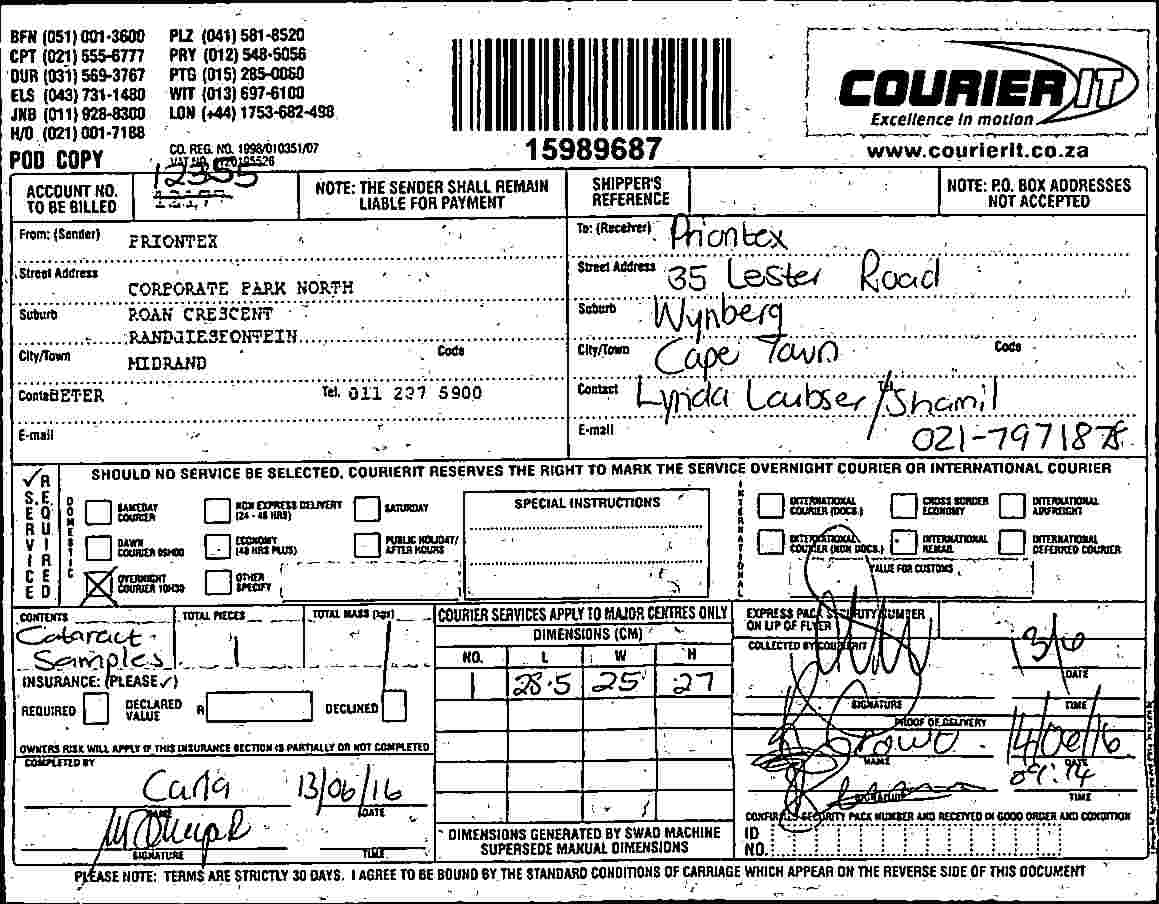 BFN (051) 001-3600 PLZ (041) 581-8520
CPT (021) 555-6777 PRY (012) 548-5056
DUR (031) 569-3767 PTG (015) 285-0060
ELS (043) 731-1480 WIT (013) 697-6100
JNB (011) 928-8300 LON (+44) 1753-682-498
H/O (021) 001-7188
POD COPY
CO. REG. NO. 1998/010351/07
VAT NO.
15989687
COURIER IT
Excellence in motion
www.courierit.co.za
ACCOUNT NO. TO BE BILLED
12355
NOTE: THE SENDER SHALL REMAIN LIABLE FOR PAYMENT
SHIPPER'S REFERENCE
NOTE: P.O. BOX ADDRESSES NOT ACCEPTED
From: (Sender) PRIONTEX
Street Address
CORPORATE PARK NORTH
Suburb ROAN CRESCENT
RANDJIESFONTEIN
City/Town MIDRAND Code
Conta PETER Tel. 011 237 5900
E-mail
To: (Receiver) Priontex
Street Address 35 Lester Road
Suburb Wynberg
City/Town Cape Town Code
Contact Lynda Laubser / Shamil
E-mail 021-7971878
SHOULD NO SERVICE BE SELECTED, COURIERIT RESERVES THE RIGHT TO MARK THE SERVICE OVERNIGHT COURIER OR INTERNATIONAL COURIER
SERVICE REQUIRED
DOMESTIC
SAMEDAY COURIER
NON EXPRESS DELIVERY (24 - 48 HRS)
SATURDAY
DAWN COURIER 09H00
ECONOMY (48 HRS PLUS)
PUBLIC HOLIDAY/ AFTER HOURS
OVERNIGHT COURIER 10H30
OTHER SPECIFY
SPECIAL INSTRUCTIONS
INTERNATIONAL
INTERNATIONAL COURIER (DOCS.)
CROSS BORDER ECONOMY
INTERNATIONAL AIRFREIGHT
INTERNATIONAL COURIER (NON DOCS.)
INTERNATIONAL REMAIL
INTERNATIONAL DEFERRED COURIER
VALUE FOR CUSTOMS
CONTENTS
Cataract Samples
TOTAL PIECES
1
TOTAL MASS (kgs)
1
INSURANCE: (PLEASE ✓)
REQUIRED
DECLARED VALUE R
DECLINED
OWNERS RISK WILL APPLY IF THIS INSURANCE SECTION IS PARTIALLY OR NOT COMPLETED
COMPLETED BY
Carla 13/06/16
NAME DATE
SIGNATURE TIME
COURIER SERVICES APPLY TO MAJOR CENTRES ONLY
DIMENSIONS (CM)
NO. L W H
1 28.5 25 27
DIMENSIONS GENERATED BY SWAD MACHINE SUPERSEDE MANUAL DIMENSIONS
EXPRESS PACK SECURITY NUMBER ON LIP OF FLYER
COLLECTED BY COURIERIT
13/6
DATE
SIGNATURE TIME
PROOF OF DELIVERY
NAME DATE
SIGNATURE TIME
CONFIRM SECURITY PACK NUMBER AND RECEIVED IN GOOD ORDER AND CONDITION
ID NO.
PLEASE NOTE: TERMS ARE STRICTLY 30 DAYS. I AGREE TO BE BOUND BY THE STANDARD CONDITIONS OF CARRIAGE WHICH APPEAR ON THE REVERSE SIDE OF THIS DOCUMENT